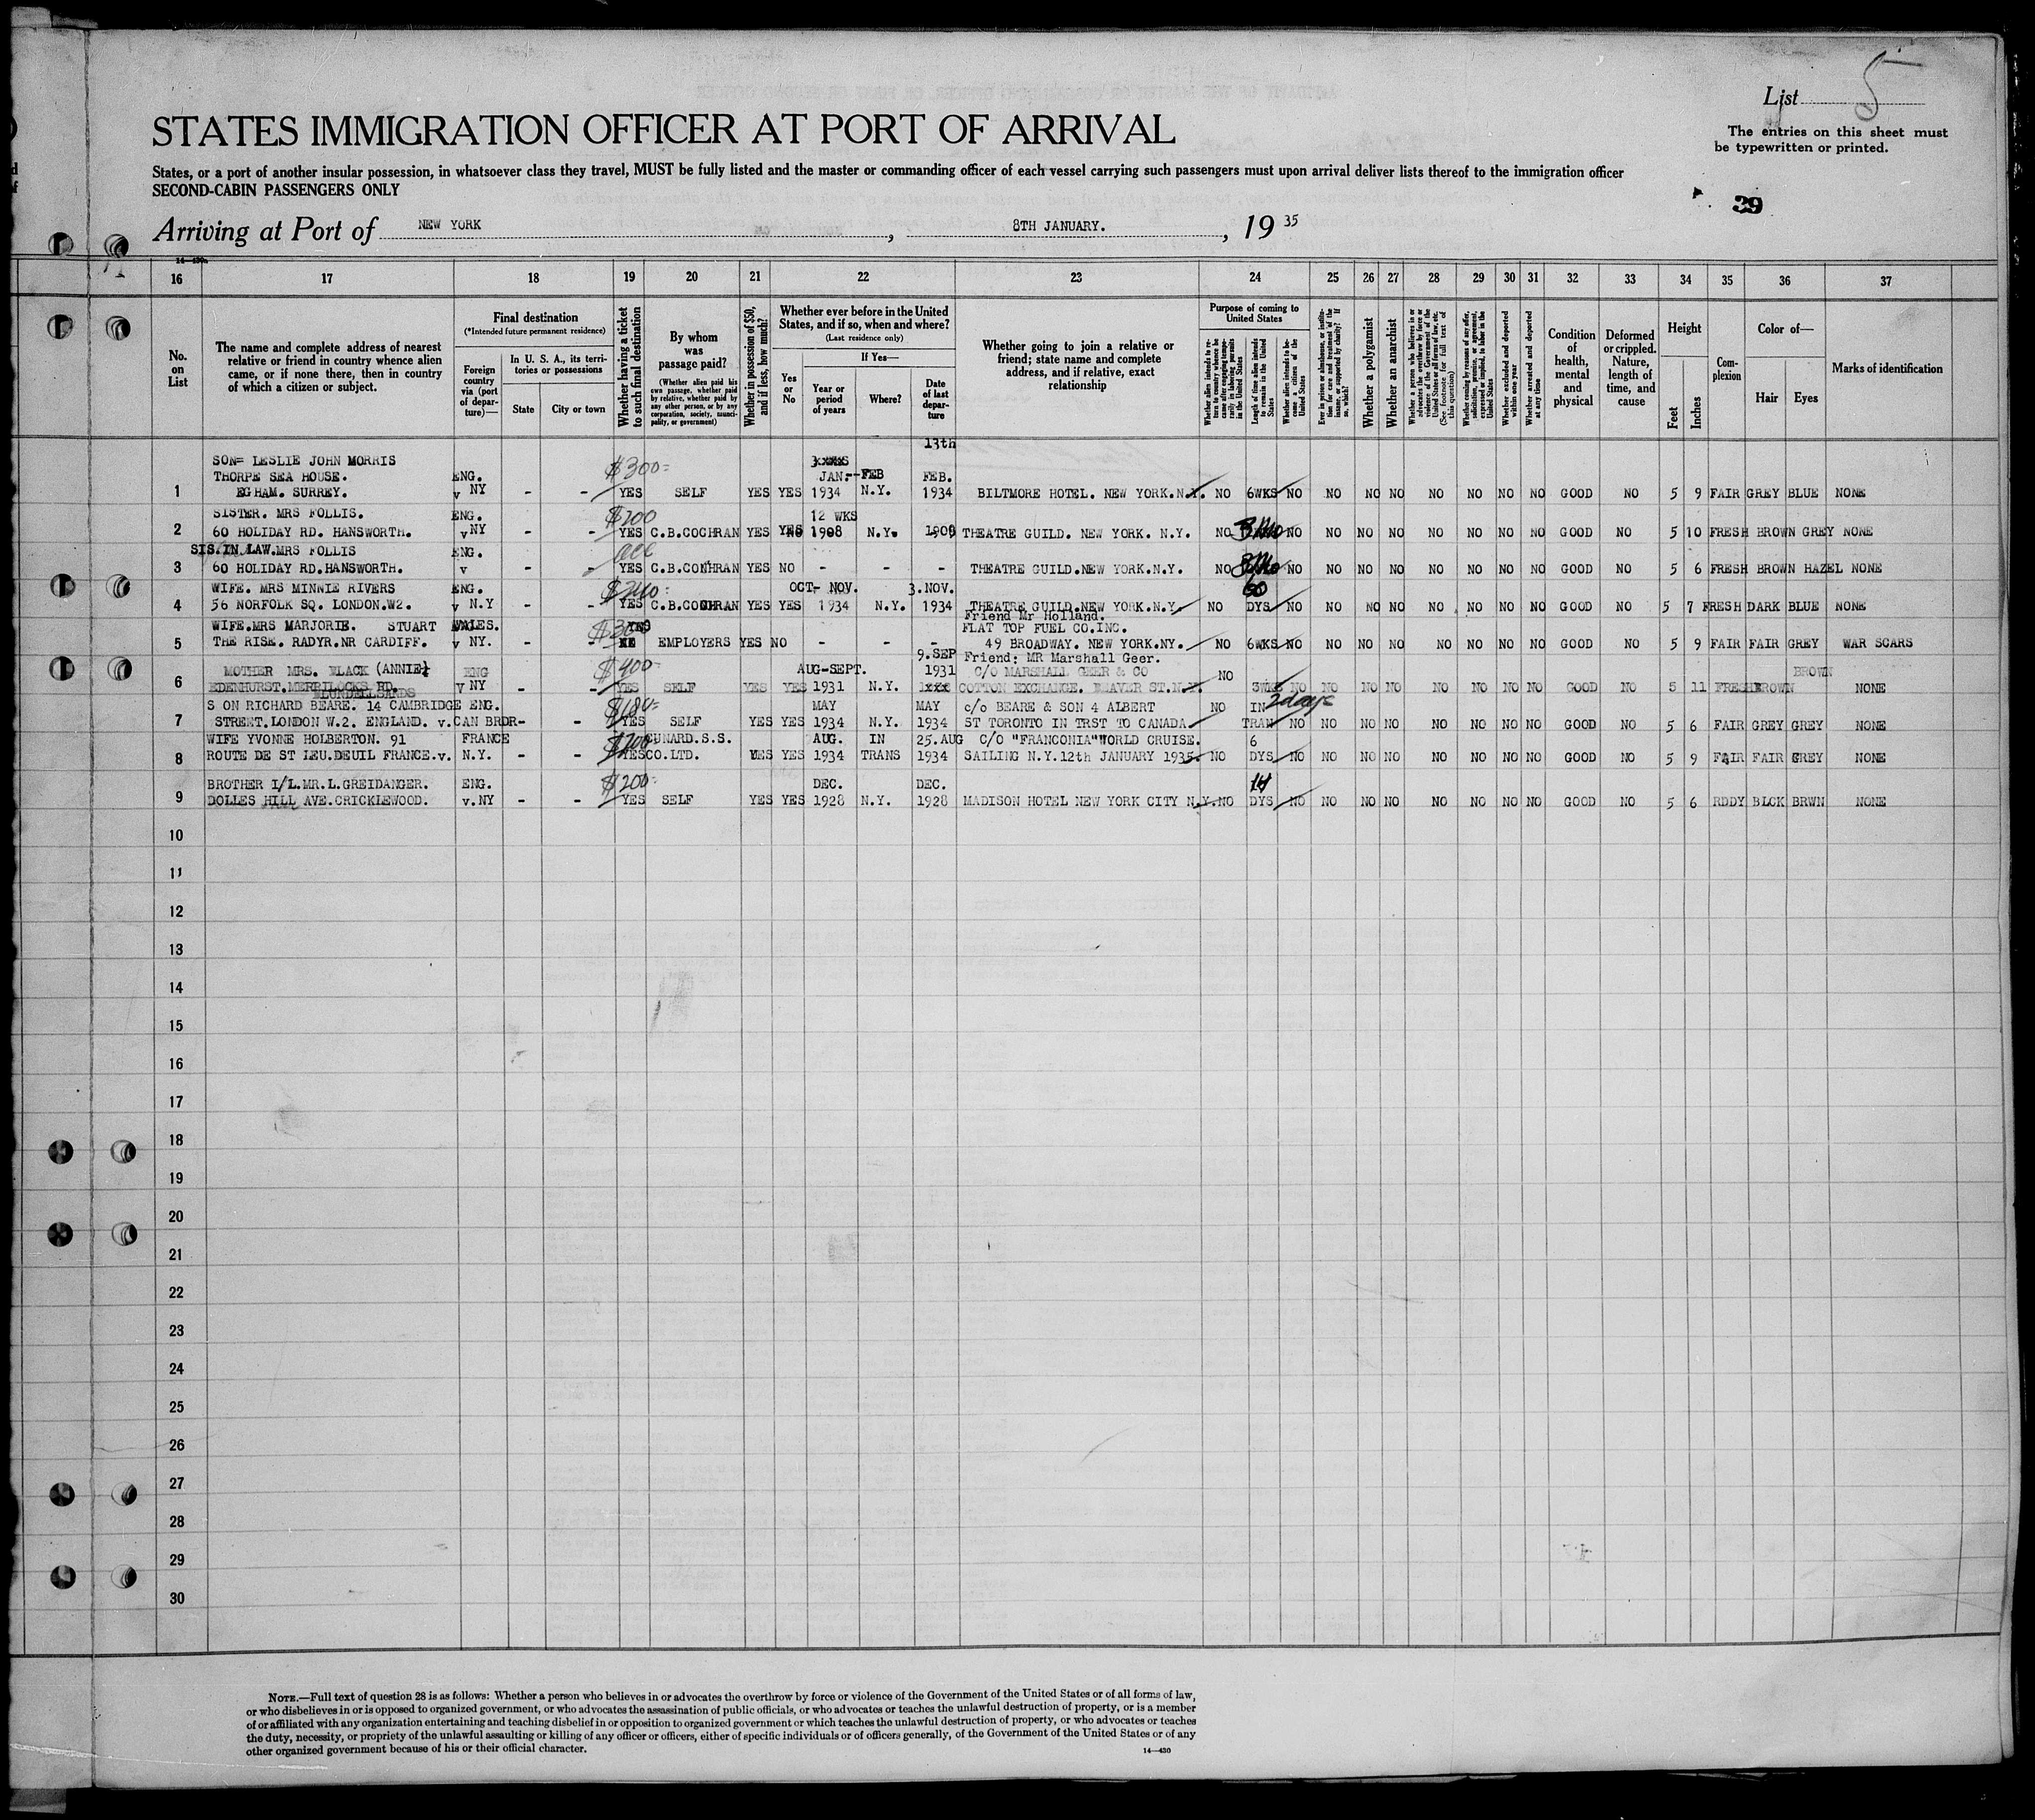 List 5
STATES IMMIGRATION OFFICER AT PORT OF ARRIVAL
The entries on this sheet must
be typewritten or printed.
States, or a port of another insular possession, in whatsoever class they travel, MUST be fully listed and the master or commanding officer of each vessel carrying such passengers must upon arrival deliver lists thereof to the immigration officer
SECOND-CABIN PASSENGERS ONLY
39
Arriving at Port of NEW YORK, 8TH JANUARY., 19 35
16 17 18 19 20 21 22 23 24 25 26 27 28 29 30 31 32 33 34 35 36 37
No. on List
The name and complete address of nearest relative or friend in country whence alien came, or if none there, then in country of which a citizen or subject.
Final destination
(*Intended future permanent residence)
Foreign country via (port of departure)—
In U. S. A., its territories or possessions
State
City or town
Whether having a ticket to such final destination
By whom was passage paid?
(Whether alien paid his own passage, whether paid by relative, whether paid by any other person, or by any corporation, society, municipality, or government)
Whether in possession of $50, and if less, how much?
Whether ever before in the United States, and if so, when and where?
(Last residence only)
Yes or No
If Yes—
Year or period of years
Where?
Date of last departure
Whether going to join a relative or friend; state name and complete address, and if relative, exact relationship
Purpose of coming to United States
Whether alien intends to return to country whence he came after engaging temporarily in laboring pursuits in the United States
Length of time alien intends to remain in the United States
Whether alien intends to become a citizen of the United States
Ever in prison or almshouse, or institution for care and treatment of the insane, or supported by charity? If so, which?
Whether a polygamist
Whether an anarchist
Whether a person who believes in or advocates the overthrow by force or violence of the Government of the United States or all forms of law, etc. (See footnote for full text of this question)
Whether coming by reasons of any offer, solicitation, promise, or agreement, expressed or implied, to labor in the United States
Whether excluded and deported within one year
Whether arrested and deported at any time
Condition of health, mental and physical
Deformed or crippled. Nature, length of time, and cause
Height
Feet
Inches
Complexion
Color of—
Hair
Eyes
Marks of identification
13th
SON= LESLIE JOHN MORRIS $300-
THORPE SEA HOUSE. ENG. JAN.--FEB FEB.
1 EGHAM. SURREY. v NY - - YES SELF YES YES 1934 N.Y. 1934 BILTMORE HOTEL. NEW YORK.N.Y. NO 6WKS NO NO NO NO NO NO NO NO GOOD NO 5 9 FAIR GREY BLUE NONE
SISTER. MRS FOLLIS. ENG. $200 12 WKS
2 60 HOLIDAY RD. HANSWORTH. v NY - - YES C.B.COCHRAN YES YES 1908 N.Y. 1908 THEATRE GUILD. NEW YORK. N.Y. NO 3 Mo NO NO NO NO NO NO NO NO GOOD NO 5 10 FRESH BROWN GREY NONE
SIS.IN LAW.MRS FOLLIS ENG.
3 60 HOLIDAY RD.HANSWORTH. v - - YES C.B.COCHRAN YES NO - - - THEATRE GUILD.NEW YORK.N.Y. NO 3 Mo NO NO NO NO NO NO NO NO GOOD NO 5 6 FRESH BROWN HAZEL NONE
WIFE. MRS MINNIE RIVERS ENG. $240- OCT- NOV. 3.NOV. 60
4 56 NORFOLK SQ. LONDON.W2. v N.Y - - YES C.B.COCHRAN YES YES 1934 N.Y. 1934 THEATRE GUILD.NEW YORK.N.Y. NO DYS NO NO NO NO NO NO NO NO GOOD NO 5 7 FRESH DARK BLUE NONE
Friend Mr Holland.
WIFE.MRS MARJORIE. STUART WALES. $300 YES FLAT TOP FUEL CO.INC.
5 THE RISE. RADYR.NR CARDIFF. v NY. - - EMPLOYERS YES NO - - - 49 BROADWAY. NEW YORK.NY. NO 6WKS NO NO NO NO NO NO NO NO GOOD NO 5 9 FAIR FAIR GREY WAR SCARS
9.SEP Friend: MR Marshall Geer.
MOTHER MRS. WLACK (ANNIE) ENG $400- AUG-SEPT. 1931 C/O MARSHALL GEER & CO NO BROWN
6 EDENHURST.MERRILOCKS RD. v NY - - YES SELF YES YES 1931 N.Y. COTTON EXCHANGE. BEAVER ST.N.Y. 3WKS NO NO NO NO NO NO NO NO GOOD NO 5 11 FRESH BROWN NONE
BLUNDELLSANDS
S ON RICHARD BEARE. 14 CAMBRIDGE ENG. $180- MAY MAY c/o BEARE & SON 4 ALBERT NO IN 2 days
7 STREET.LONDON W.2. ENGLAND. v.CAN BRDR- - YES SELF YES YES 1934 N.Y. 1934 ST TORONTO IN TRST TO CANADA. TRAN NO NO NO NO NO NO NO NO GOOD NO 5 6 FAIR GREY GREY NONE
WIFE YVONNE HOLBERTON. 91 FRANCE $200 CUNARD.S.S. AUG. IN 25.AUG C/O "FRANCONIA"WORLD CRUISE. 6
8 ROUTE DE ST LEU.DEUIL FRANCE.v. N.Y. - - YES CO.LTD. YES YES 1934 TRANS 1934 SAILING N.Y.12th JANUARY 1935. NO DYS NO NO NO NO NO NO NO NO GOOD NO 5 9 FAIR FAIR GREY NONE
BROTHER I/L.MR.L.GREIDANGER. ENG. $200- DEC. DEC. 14
9 DOLLES HILL AVE.CRICKLEWOOD. v.NY - - YES SELF YES YES 1928 N.Y. 1928 MADISON HOTEL NEW YORK CITY N.Y. NO DYS NO NO NO NO NO NO NO NO GOOD NO 5 6 RDDY BLCK BRWN NONE
10
11
12
13
14
15
16
17
18
19
20
21
22
23
24
25
26
27
28
29
30
NOTE.—Full text of question 28 is as follows: Whether a person who believes in or advocates the overthrow by force or violence of the Government of the United States or of all forms of law,
or who disbelieves in or is opposed to organized government, or who advocates the assassination of public officials, or who advocates or teaches the unlawful destruction of property, or is a member
of or affiliated with any organization entertaining and teaching disbelief in or opposition to organized government or which teaches the unlawful destruction of property, or who advocates or teaches
the duty, necessity, or propriety of the unlawful assaulting or killing of any officer or officers, either of specific individuals or of officers generally, of the Government of the United States or of any
other organized government because of his or their official character.
14—430